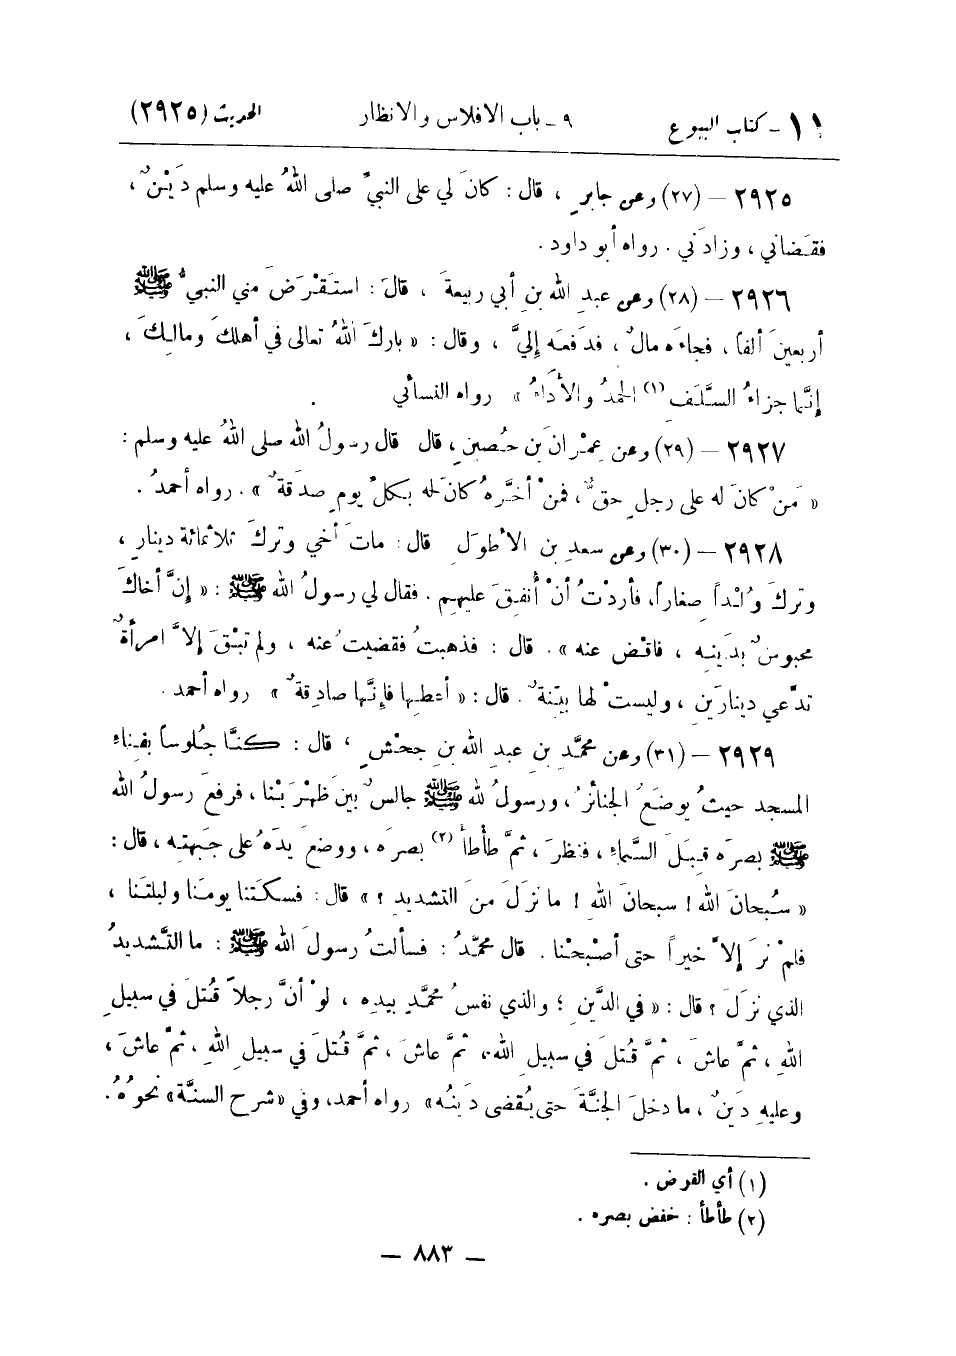 ١١ - كتاب البيوع ٩ - باب الافلاس والانظار الحديث (٢٩٢٥)
٢٩٢٥ – (٢٧) وعن جابرٍ ، قال : كانَ لي على النبيِّ صلى اللهُ عليه وسلم دَيْنٌ ،
فقضاني ، وزادَني . رواه أبو داود .
٢٩٢٦ – (٢٨) وعن عبدِ الله بنِ أبي ربيعةَ ، قالَ : استَقْرَضَ مني النبيُّ ﷺ
أربعينَ ألفاً ، فجاءَه مالٌ ، فدَفعَه إليَّ ، وقال : « باركَ اللهُ تعالى في أهلكَ ومالِكَ ،
إنَّما جزاءُ السَّلَفِ (١) الحمدُ والأَداءُ » رواه النسائي .
٢٩٢٧ – (٢٩) وعن عِمْران بن حُصينٍ ، قال قال رسولُ الله صلى اللهُ عليه وسلم :
« مَنْ كانَ له على رجلٍ حقٌّ ، فمنْ أخَّرهُ كانَ له بكلِّ يومٍ صدَقةٌ » . رواه أحمدُ .
٢٩٢٨ – (٣٠) وعن سعدِ بن الأطولِ قال : ماتَ أخي وتركَ ثلاثمائة دينارٍ ،
وتركَ وُلْداً صِغاراً ، فأردْتُ أنْ أُنفِقَ عليهِم . فقال لي رسولُ الله ﷺ : « إنَّ أخاكَ
محبوسٌ بدَينِه ، فاقْضِ عنه » . قال : فذهبتُ فقضيتُ عنه ، ولم تبْقَ إلاَّ امرأةٌ
تدَّعي دينارَينِ ، وليستْ لها بيّنةٌ . قال : « أعطِها فإنَّها صادِقةٌ » رواه أحمد .
٢٩٢٩ – (٣١) وعن محمَّدِ بنِ عبدِ الله بنِ جحْشٍ ، قال : كنَّا جُلوساً بفِناءِ
المسجد حيثُ يوضَعُ الجنائزُ ، ورسولُ لله ﷺ جالسٌ بينَ ظهْرَيْنا ، فرفعَ رسولُ الله
ﷺ بصرَه قِبَلَ السَّماءِ ، فنظرَ ، ثمَّ طأْطأَ (٢) بصرَه ، ووضعَ يدَهُ على جَبهتِه ، قال :
« سُبحانَ الله ! سبحانَ اللهِ ! ما نزَلَ منَ التشديدِ ؟ » قال : فسكَتنا يومَنا وليلتَنا ،
فلمْ نرَ إلاَّ خيراً حتى أصْبحْنا . قال محمَّدُ : فسألتُ رسولَ الله ﷺ : ما التَّشديدُ
الذي نزَلَ ؟ قال : « في الدَّينِ ؛ والذي نفسُ محمَّدٍ بيدِه ، لوْ أنَّ رجلاً قُتلَ في سبيلِ
اللهِ ، ثمَّ عاشَ ، ثمَّ قُتلَ في سبيلِ الله ، ثمَّ عاشَ ، ثمَّ قُتلَ في سبيلِ اللهِ ، ثمَّ عاشَ ،
وعليهِ دَينٌ ، ما دخلَ الجنَّةَ حتى يُقضى دَينُه » رواه أحمد، وفي «شرح السنَّة» نحوُهُ .
(١) أي القرض .
(٢) طأطأ : خفض بصره .
– ٨٨٣ –